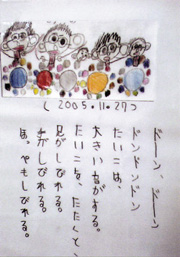 (2005.11.27)
ドーン、ドーン
ドンドンドン
たいこは、
大きい音がする。
たいこを、たたくと、
見がしびれる。
手がしびれる。
耳もしびれる。